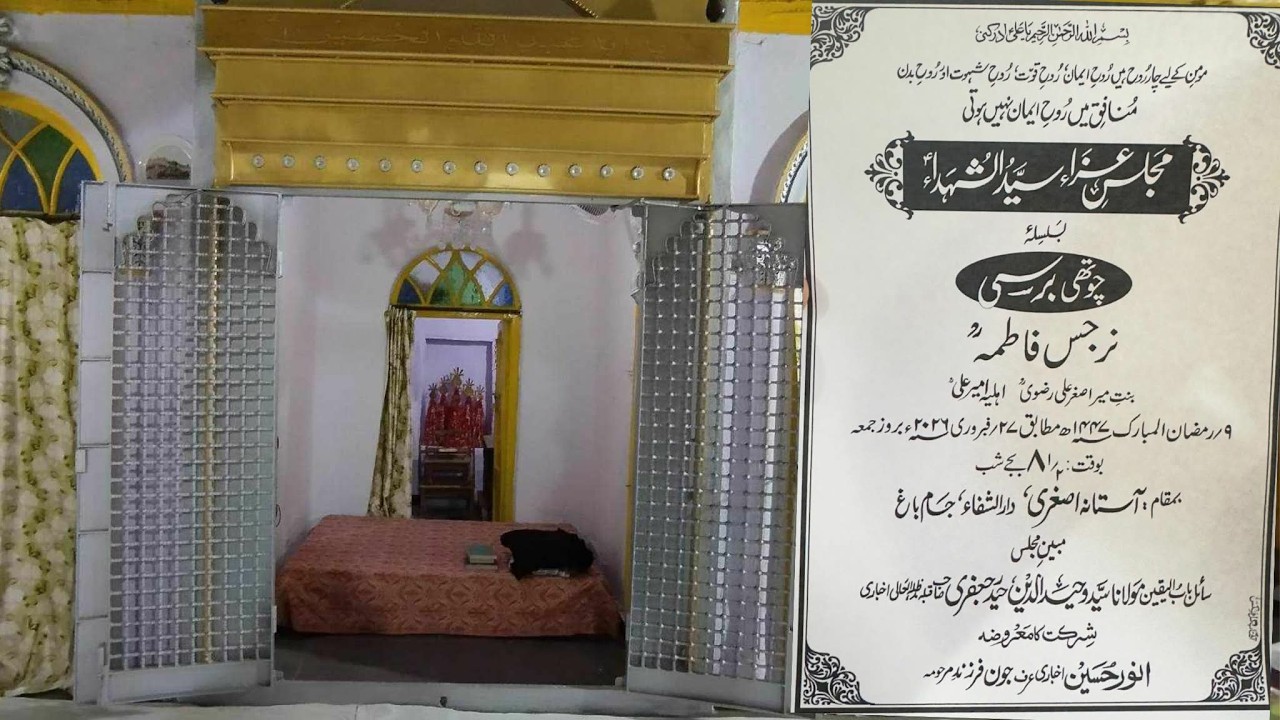 بسم اللہ الرحمٰن الرحیم یا علیؑ ادرکنی
مومن کے لیے چار روح ہیں رُوحِ ایمان، رُوحِ قوت، رُوحِ شہوت اور رُوحِ بدن
مُنافق میں رُوحِ ایمان نہیں ہوتی
مجلسِ عزاء سیّدُ الشہداءؑ
بسلسلۂ
چوتھی برسی
نرجس فاطمہ
بنتِ میر اصغر علی رضوی اہلیہ امیر علی
۹/رمضان المبارک ۱۴۴۷ھ مطابق ۲۷/فبروری ۲۰۲۶ء بروز جمعہ
بوقت: ۸ ۱/۲ بجے شب
بمقام: آستانہ اصغری، دارالشفاء، جام باغ
مبینِ مجلس
سائل باب الیقین مولانا سیّد وحید الدین حیدر جعفری صاحب قبلہ مدظلہ العالی اخباری
شرکت کا معروضہ
انور حسین اخباری عرف جون فرزندِ مرحومہ